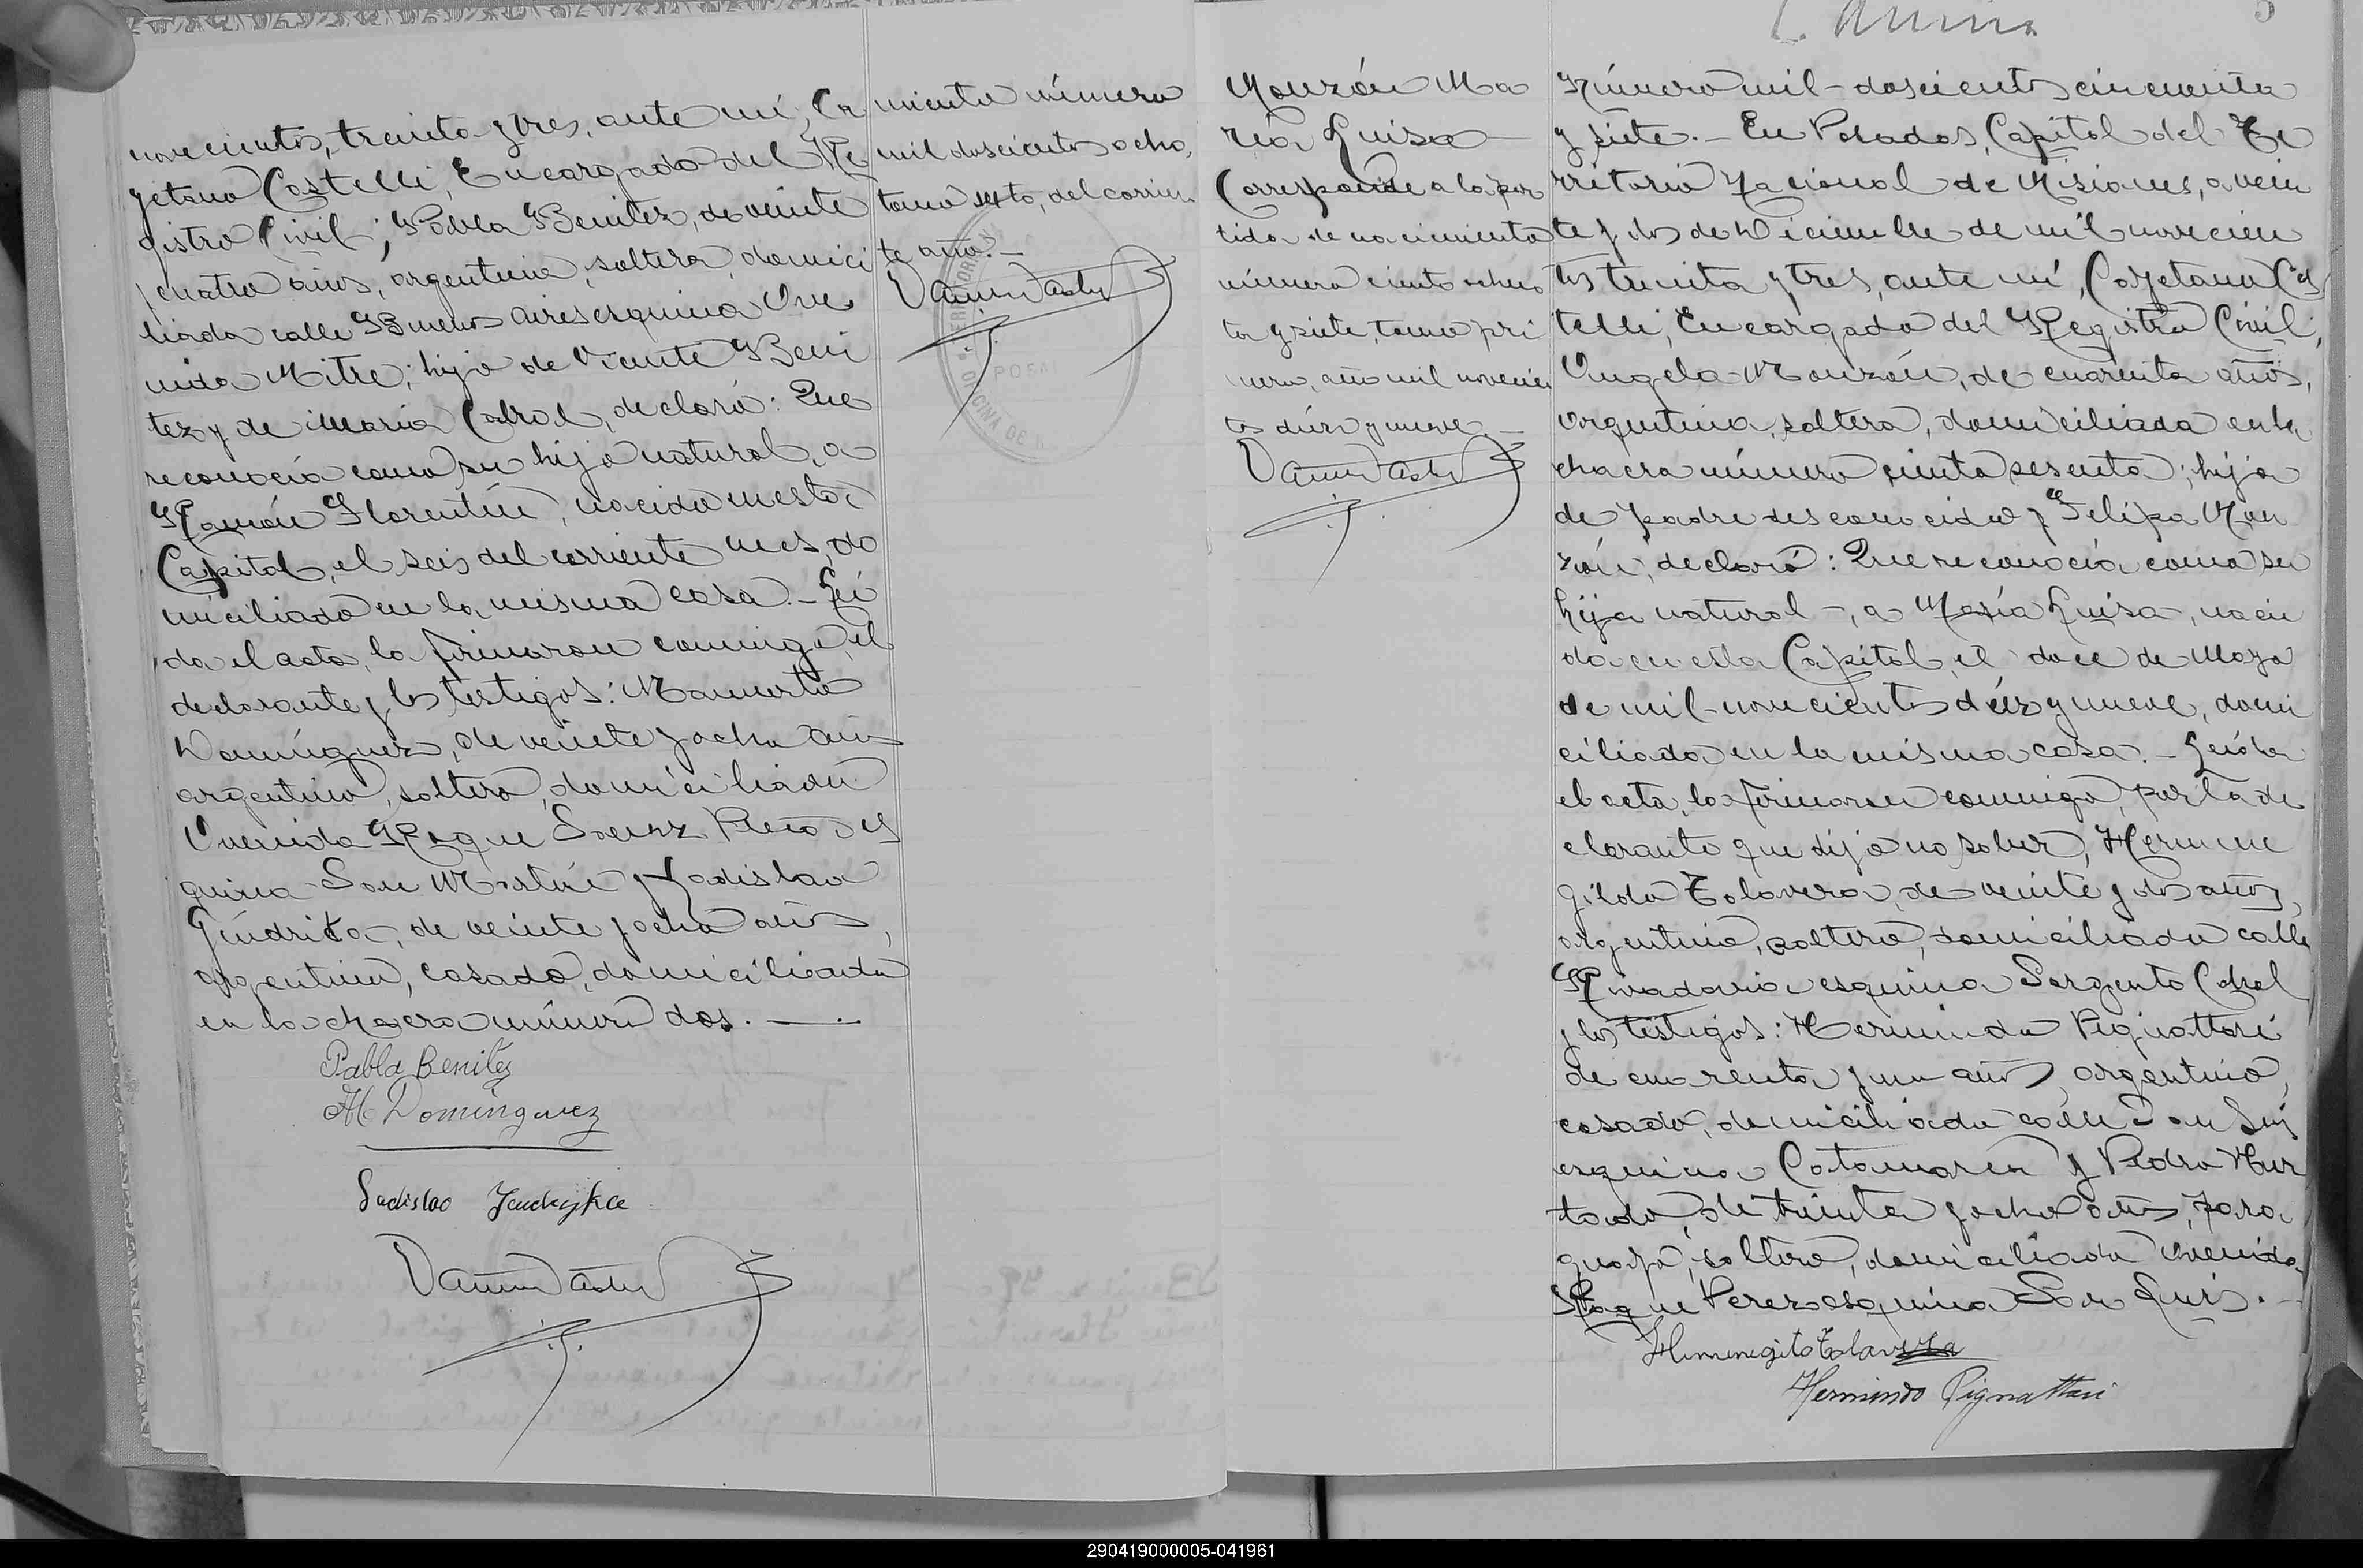 novecientos, treinta y tres, ante mí, Ca
yetano Castelli, Encargado del Re
gistro Civil; Pabla Benitez, de veinte
y cuatro años, argentina, soltera, domici
liada calle Buenos Aires esquina Ave
nida Mitre; hija de Vicente Beni
tez y de María Cabral, declaró: Que
reconocía como su hijo natural, a
Ramón Florentín, nacido en esta
Capital, el seis del corriente mes, do
miciliado en la misma casa. - Leí
da el acta, la firmaron conmigo, el
declarante y los testigos: Mamerto
Domínguez, de veinte y ocho años
argentino, soltero, domiciliado
Avenida Roque Saenz Peña es
quina San Martín y Ladislao
de veinte y ocho años,
argentino, casado, domiciliado
en la chacra número dos. —
Pabla Benitez
M Dominguez
Ladislao
miento número
mil doscientos ocho,
tomo sexto, del corrien
te año. -
Monzón Ma
ría Luisa
Corresponde a la par
tida de nacimiento
número ciento ochen
ta y siete, tomo pri
mero, año mil novecien
tos diez y nueve. -
Número mil - doscientos cincuenta
y siete. - En Posadas, Capital del Te
rritorio Nacional de Misiones, a vein
te y dos de Diciembre de mil novecien
tos treinta y tres, ante mí, Cayetano Cas
telli, Encargado del Registro Civil;
Angela Monzón, de cuarenta años,
argentina, soltera, domiciliada en la
chacra número ciento sesenta; hija
de padre desconocido y Felipa Mon
zón, declaró: Que reconocía como su
hija natural -, a María Luisa, naci
da en esta Capital, el doce de Mayo
de mil novecientos diez y nueve, domi
ciliada en la misma casa. - Leída
el acta, la firmaron conmigo, por la de
clarante que dijo no saber, Herme ne
gildo Talavera, de veinte y dos años,
argentino, soltero, domiciliado calle
Rivadavia esquina Sargento Cabral
y los testigos: Hermindo Pignattari
de cuarenta y un años, argentino,
casado, domiciliado calle San Luis
esquina Catamarca y Pedro Hur
tado, de treinta y ocho años, para
guayo, soltero, domiciliado Avenida
Roque Perez esquina San Luis. -
Hermenegito Talavera
Hermindo Pignattari
290419000005-041961